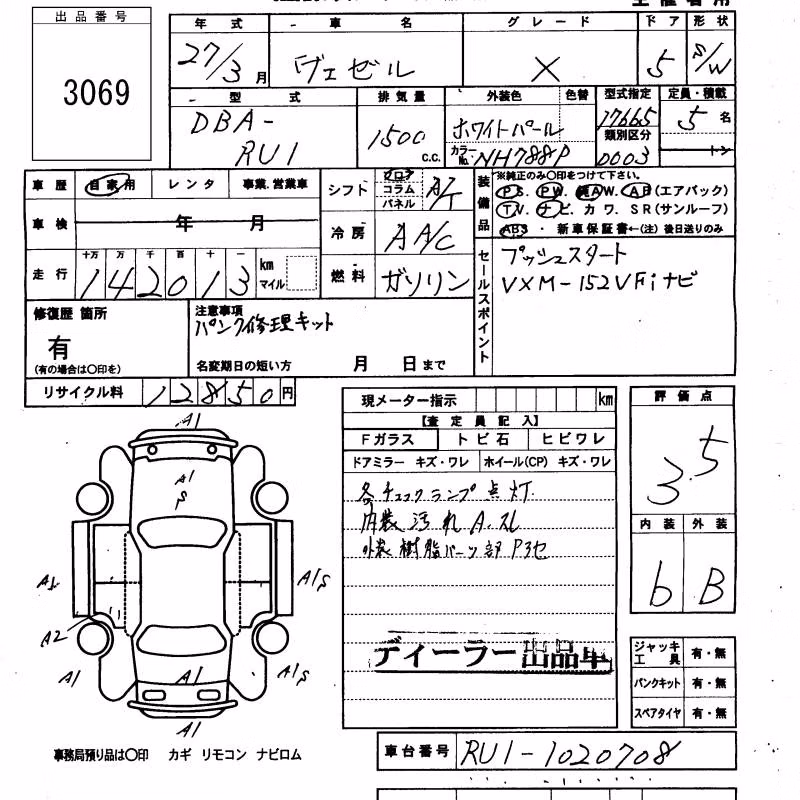 出品番号
3069
年式 車名 グレード ドア 形状
27/3月 ヴェゼル X 5 S/W
型式 排気量 外装色 色替 型式指定 定員・積載
DBA-RU1 1500 C.C. ホワイトパール 17665 5名
カラーNo. NH788P 類別区分 0003 トン
車歴 自家用 レンタ 事業.営業車
シフト フロア コラム パネル A/T
装備品 ※純正のみ〇印をつけて下さい。
PS. PW. AW. AB(エアバック)
TV. ナビ. カワ. SR(サンルーフ)
ABS・新車保証書←(注)後日送りのみ
車検 年 月
冷房 AAC
走行 十万 万 千 百 十 一
142013 km マイル
燃料 ガソリン
セールスポイント
プッシュスタート
VXM-152VFiナビ
修復歴 箇所
有
(有の場合は〇印を)
注意事項
パンク修理キット
名変期日の短い方 月 日まで
リサイクル料 12850円
現メーター指示 km
【査定員記入】
Fガラス トビ石 ヒビワレ
ドアミラー キズ・ワレ ホイール(CP) キズ・ワレ
各チェックランプ点灯
内装汚れA.スレ
外装樹脂パーツ部
ディーラー出品車
評価点
3.5
内装 外装
b B
ジャッキ工具 有・無
パンクキット 有・無
スペアタイヤ 有・無
A1
A1
S
A1
A1S
A2
A1
A1
A1S
A1
事務局預り品は〇印 カギ リモコン ナビロム
車台番号 RU1-1020708